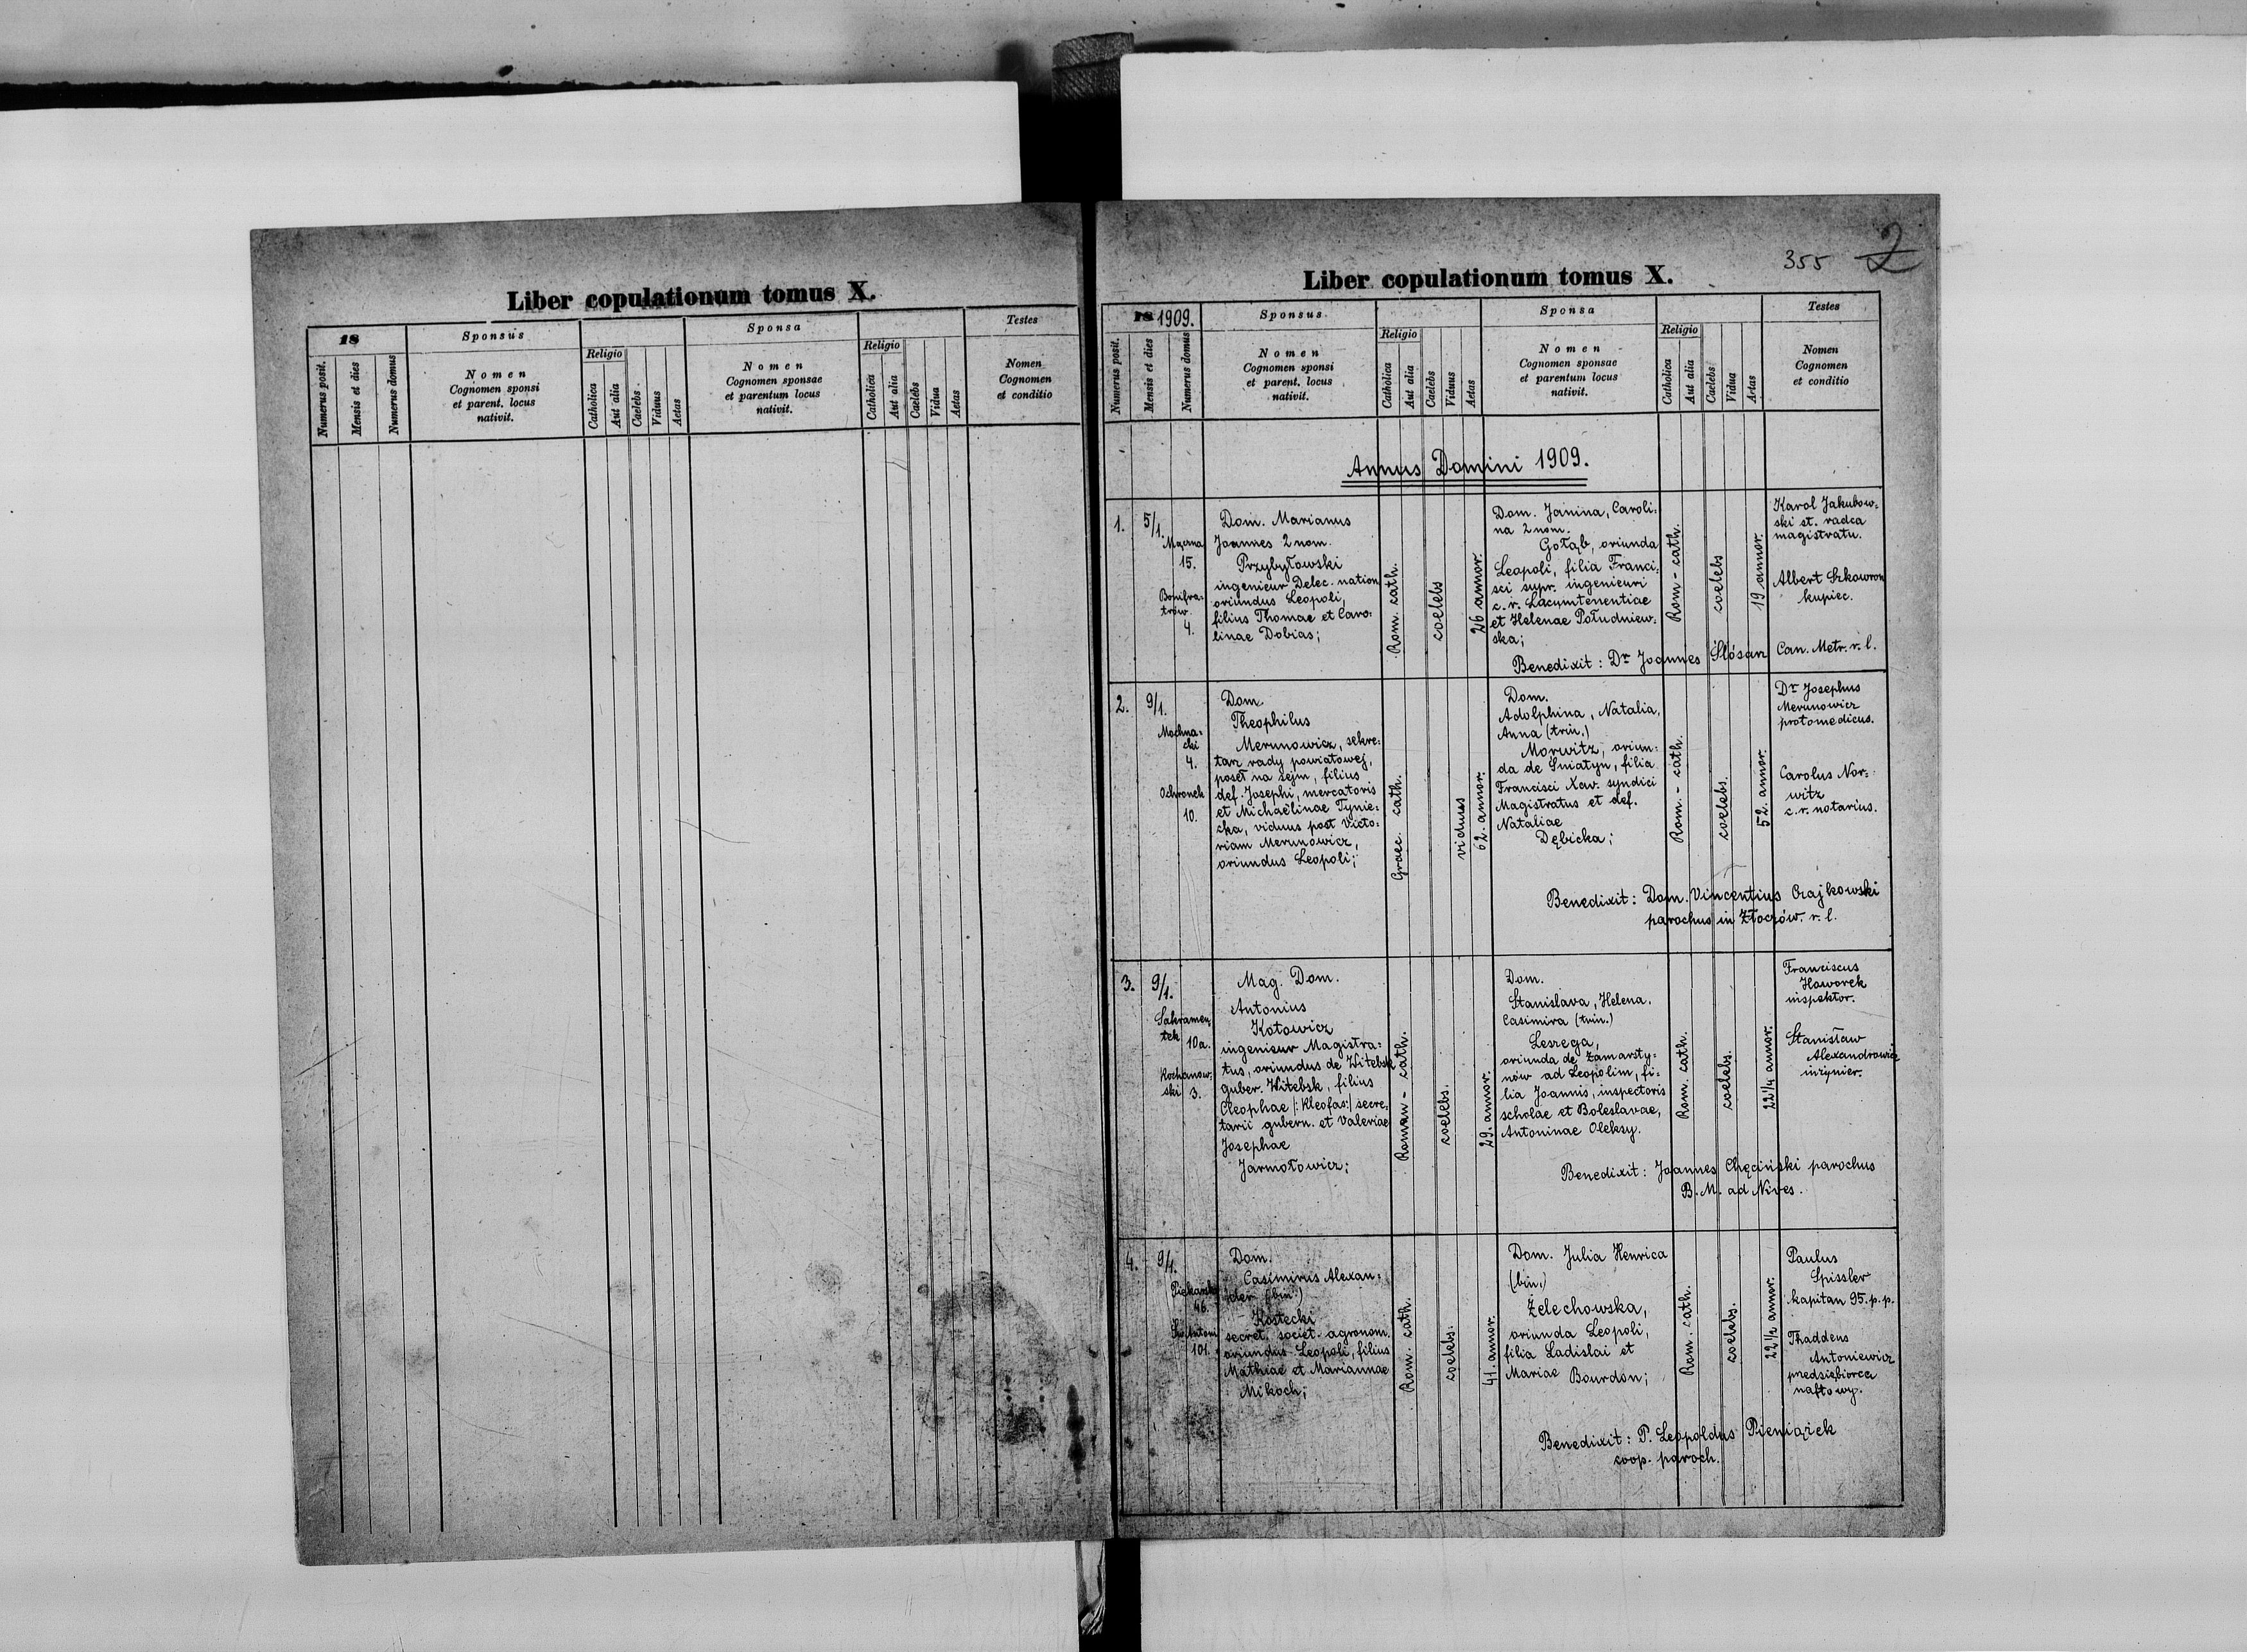 Liber copulationum tomus X.
18
Sponsus
Sponsa
Testes
Numerus posit.
Mensis et dies
Numerus domus
Nomen
Cognomen sponsi
et parent. locus
nativit.
Religio
Catholica
Aut alia
Caelebs
Viduus
Aetas
Nomen
Cognomen sponsae
et parentum locus
nativit.
Religio
Catholica
Aut alia
Caelebs
Vidua
Aetas
Nomen
Cognomen
et conditio
355
2
Liber copulationum tomus X.
18 1909.
Sponsus
Sponsa
Testes
Numerus posit.
Mensis et dies
Numerus domus
Nomen
Cognomen sponsi
et parent. locus
nativit.
Religio
Catholica
Aut alia
Caelebs
Viduus
Aetas
Nomen
Cognomen sponsae
et parentum locus
nativit.
Religio
Catholica
Aut alia
Caelebs
Vidua
Aetas
Nomen
Cognomen
et conditio
Annus Domini 1909.
1.
5/1.
15.
Bonifra-
trów.
4.
Dom. Marianus
Joannes 2 nom.
Przybyłowski
ingenieur Delec. nation
oriundus Leopoli,
filius Thomae et Caro-
linae Dobias;
Rom. cath.
coelebs
26 annor.
Dom. Janina, Caroli-
na 2 nom.
Gołąb, oriunda
Leopoli, filia Franci-
sci supr. ingenieuri
c. r. Lacumtenentiae
et Helenae Południew-
ska;
Rom - cath.
coelebs
19 annor.
Karol Jakubow-
ski st. radca
magistratu.
Albert Szkowron
kupiec.
Benedixit: Dr Joannes Ślósarz Can. Metr. r. l.
2.
9/1.
Mochna-
cki
4.
Ochronek
10.
Dom.
Theophilus
Merunowicz, sekre-
tarz rady powiatowej,
poseł na sejm, filius
def. Josephi, mercatoris
et Michaëlinae Tynie-
cka, viduus post Victo-
riam Merunowicz,
oriundus Leopoli;
Graec. cath.
viduus
62. annor.
Dom.
Adolphina, Natalia,
Anna (trin.)
Morwitz, oriun-
da de Sniatyn, filia
Francisci Xav. syndici
Magistratus et def.
Nataliae
Dębicka;
Rom. - cath.
coelebs.
52. annor.
Dr Josephus
Merunowicz
protomedicus.
Carolus Nor-
witz
c. r. notarius.
Benedixit: Dom. Vincentius Czajkowski
parochus in Złoczów. r. l.
3.
9/1.
Sakramen-
tek
10a.
Kochanow-
ski 3.
Mag. Dom.
Antonius
Kotowicz
ingenieur Magistra-
tus, oriundus de Witebsk
guber. Witebsk, filius
Cleophae /: Kleofas:/ secre-
tarii gubern. et Valeriae
Josephae
Jarmołowicz;
Roman - cath.
coelebs.
29. annor.
Dom.
Stanislava, Helena,
Casimira (trin.)
Lesrega,
oriunda de Zamarsty-
nów ad Leopolim, fi-
lia Joannis, inspectoris
scholae et Boleslavae,
Antoninae Oleksy.
Rom. cath.
coelebs.
22 1/4 annor.
Franciscus
Haworek
inspektor.
Stanisław
Alexandrowicz
inżynier.
Benedixit: Joannes Chęciński parochus
B. M. ad Nives.
4.
9/1.
Piekarska
46.
Św. Antoni
101.
Dom.
Casimirus Alexan-
der (bin.)
Kostecki
secret. societ. agronom.
oriundus Leopoli, filius
Mathiae et Mariannae
Mikoch;
Rom. cath.
coelebs.
41. annor.
Dom. Julia Henrica
(bin.)
Żelechowska,
oriunda Leopoli,
filia Ladislai et
Mariae Bourdon;
Rom. cath.
coelebs.
22 1/2 annor.
Paulus
Spissler
kapitan 95. p. p.
Thaddeus
Antoniewicz
przedsiębiorca
naftowy.
Benedixit: P. Leopoldus Pieniążek
coop. paroch.